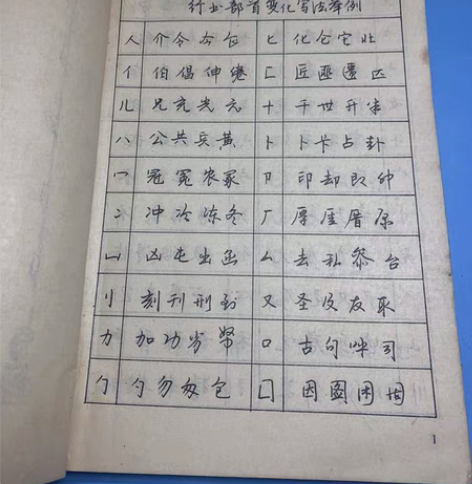 行书部首变化写法举例
人 介令夯仓 匕 化仑它北
亻 伯倡伸倦 匚 匠匪匿匹
儿 兄充光元 十 千世升半
八 公共兵黄 卜 卜卡占卦
冖 冠冤农冢 卩 印却即仰
冫 冲冷冻冬 厂 厚厘厝原
凵 凶屯出函 厶 去私参台
刂 刻刊刑到 又 圣皮友取
力 加功劣努 口 古句哗司
勹 勺勿匆包 囗 因圆困固
1